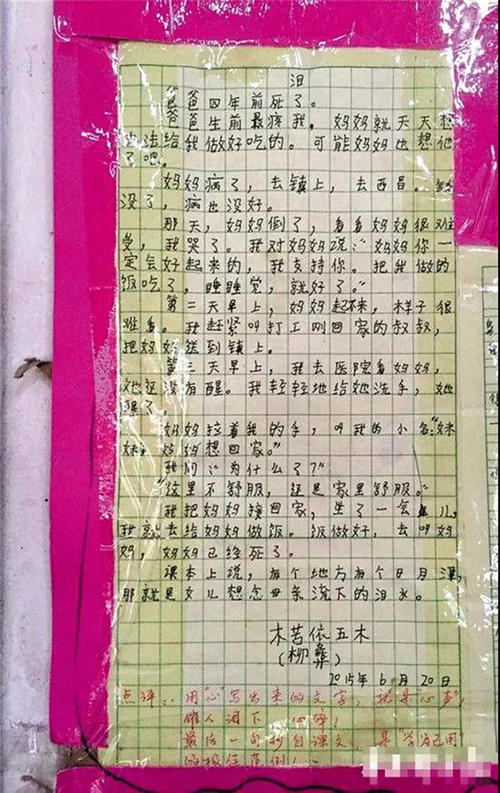 泪
爸爸四年前死了。
爸爸生前最疼我，妈妈就天天想
办法给我做好吃的。可能妈妈也想他
了吧。
妈妈病了，去镇上，去西昌。钱
没了，病也没好。
那天，妈妈倒了，看看妈妈很难
受，我哭了。我对妈妈说：“妈妈你一
定会好起来的，我支持你。把我做的
饭吃了，睡睡觉，就好了。”
第二天早上，妈妈起不来，样子很
难看。我赶紧叫打工刚回家的叔叔，
把妈妈送到镇上。
第三天早上，我去医院看妈妈，
她还没有醒。我轻轻地给她洗手，她
醒了。
妈妈拉着我的手，叫我的小名“妹
妹，妈妈想回家。”
我问：“为什么了？”
“这里不舒服，还是家里舒服。”
我把妈妈接回家，坐了一会儿，
我就去给妈妈做饭。饭做好，去叫妈
妈，妈妈已经死了。
课本上说，有个地方有个日月潭，
那就是女儿想念母亲流下的泪水。
木苦依五木
（柳彝）
2015年6月20日
点评：用“心”写出来的文字，就是“心声”，
催人泪下，心碎！
最后一句抄自课文，是“学为己用”
的极佳范例！